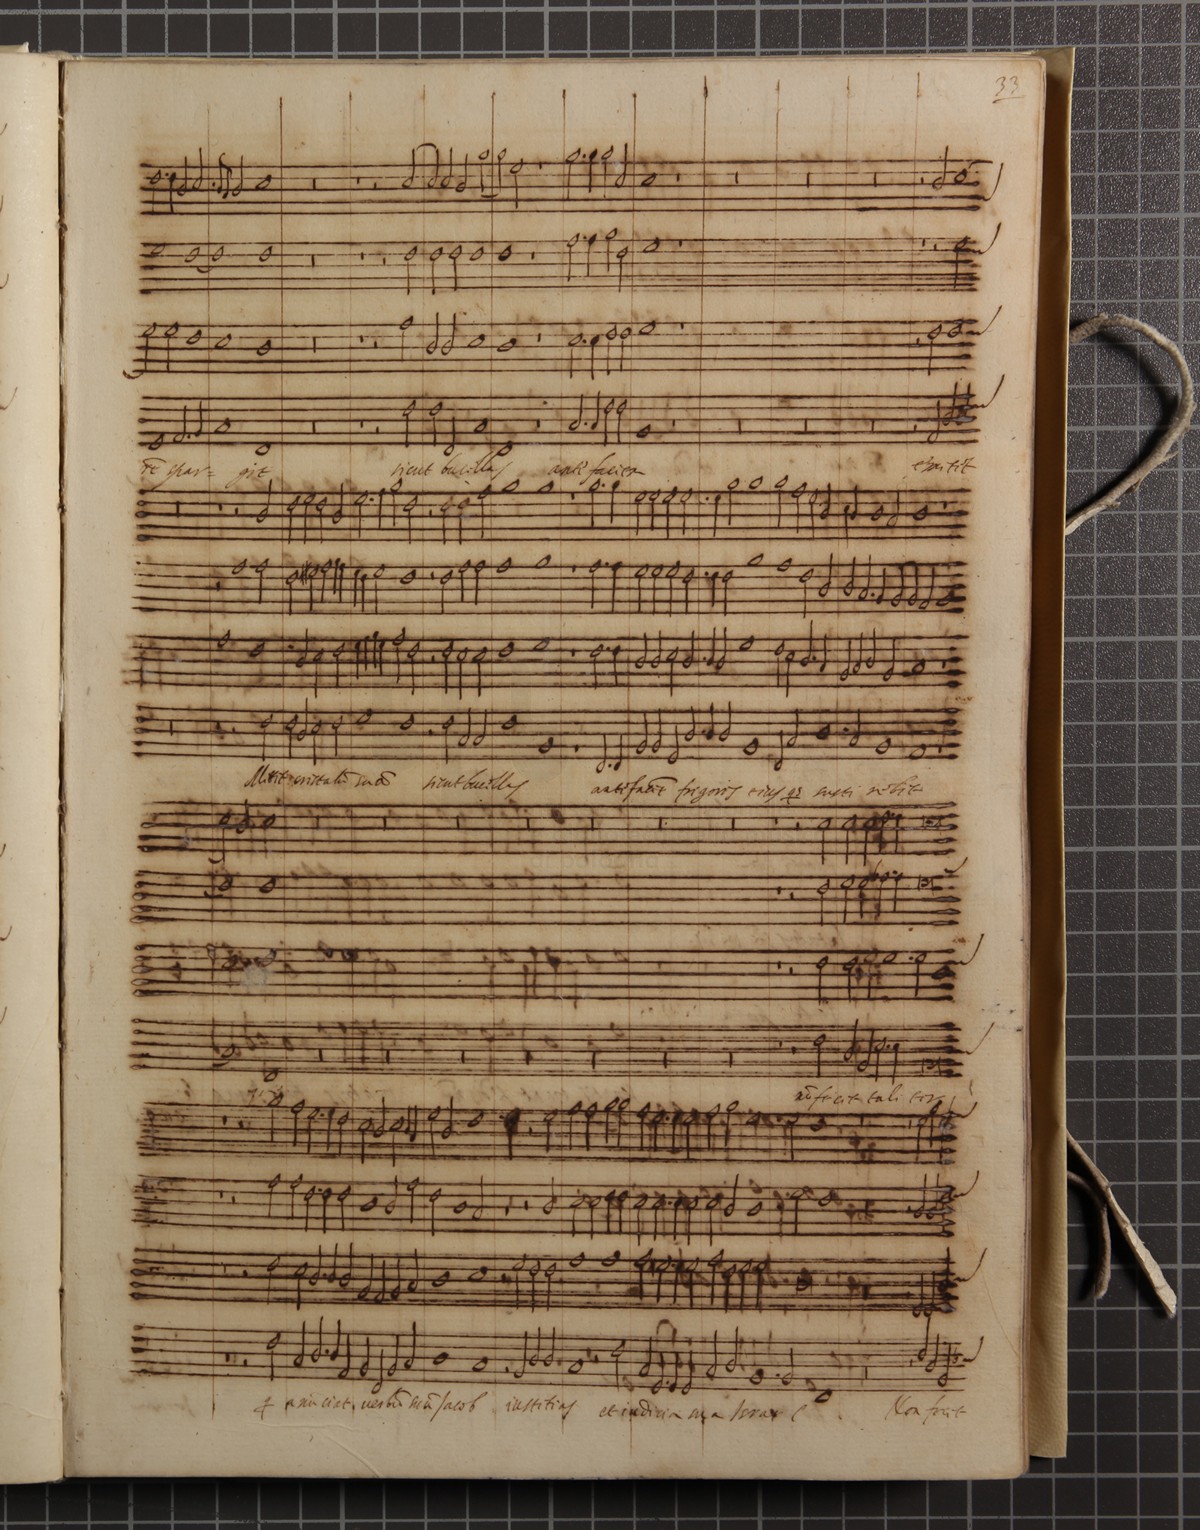 33
spar= git sicut bucellas ante faciem emittit
Mittit cristallū suā sicut bucellas ante faciē frigoris eius qs susti nebit
nō fecit tali ter
& anunciat verbū suū Jacob iustitias et iudicia sua Israel Non fecit